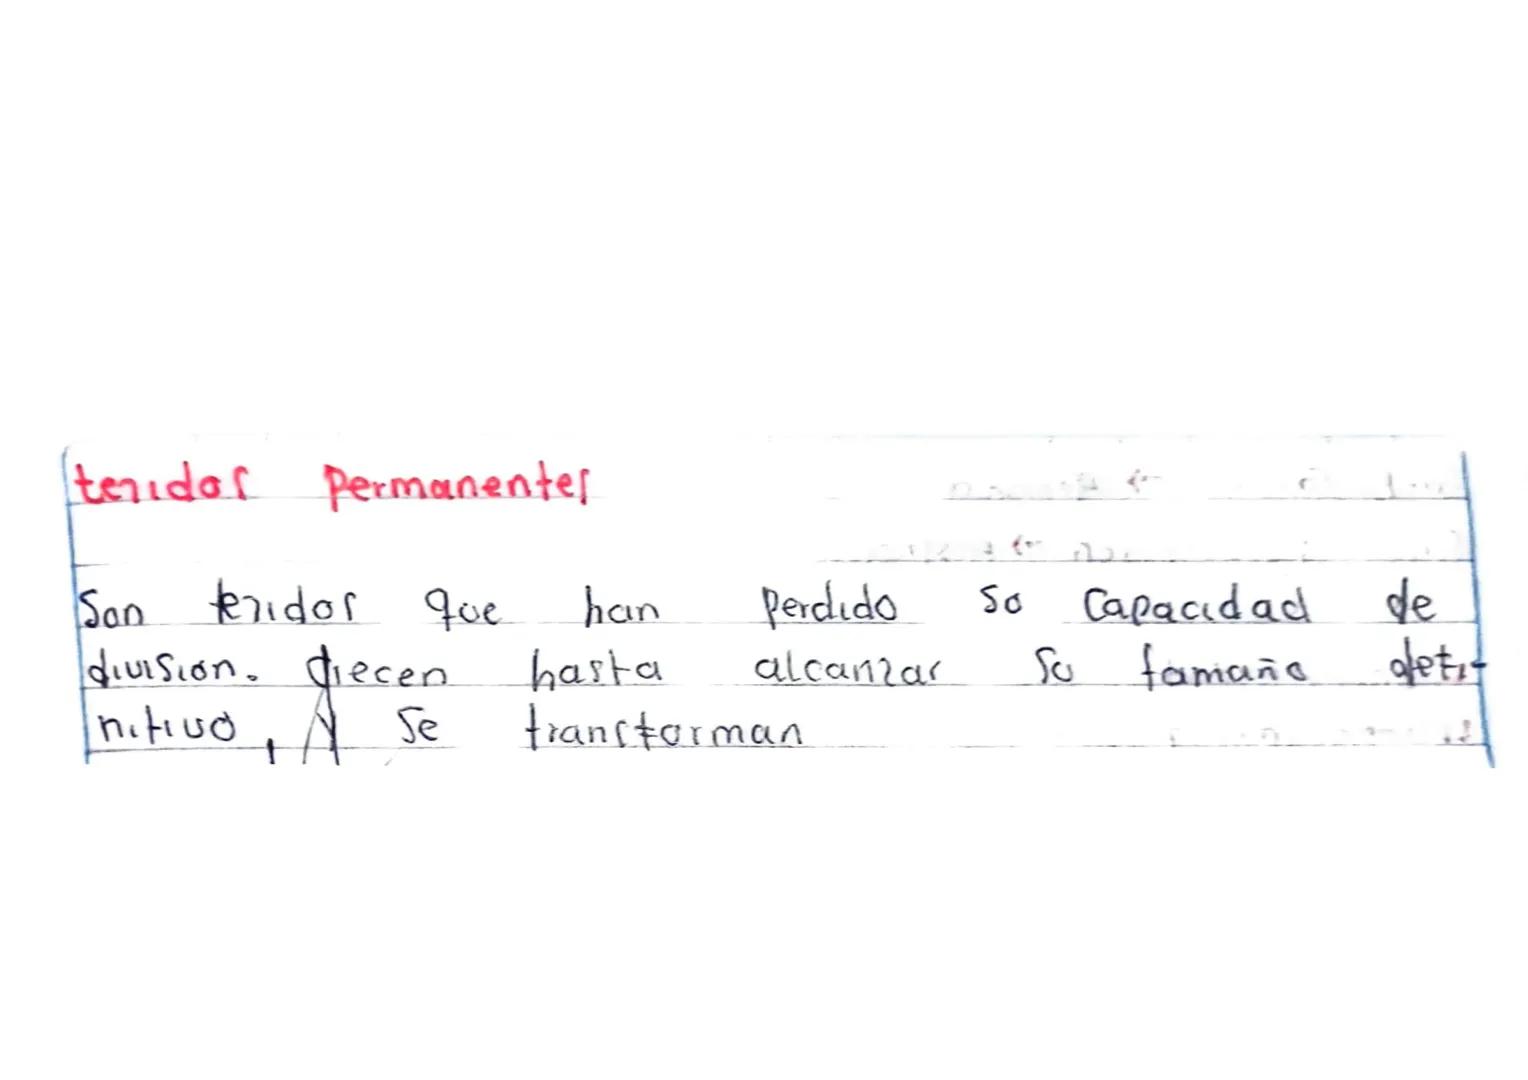 tejidos permanentes
Son tejidos que han perdido su capacidad de
division. Crecen hasta alcanzar su tamaño defi-
nitivo, y se transforman